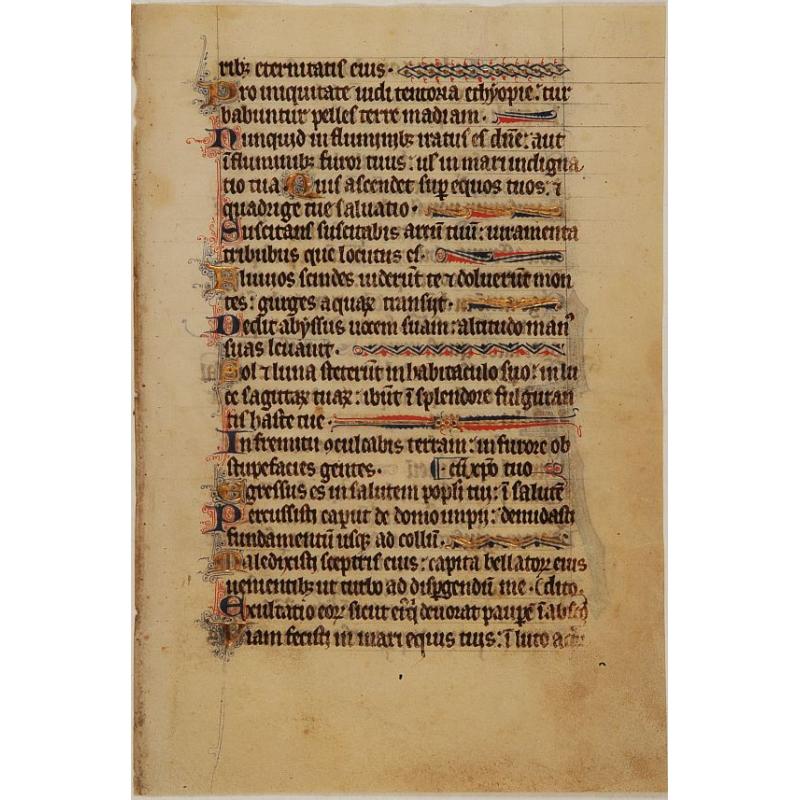 ribȝ eternitatis eius.
Pro iniquitate uidi tentoria ethyopie: tur
babuntur pelles terre madian.
Nunquid in fluminibȝ iratus es dñe: aut
ĩ fluminibȝ furor tuus: ul in mari indigna
tio tua Quis ascendet sup equos tuos: ⁊
quadrige tue saluatio.
Suscitans suscitabis arcũ tuũ: iuramenta
tribubus que locutus es.
Fluuios scindes uiderũt te ⁊ doluerũt mon
tes: gurges aquaꝝ transijt.
Dedit abyssus uocem suam: altitudo man⁹
suas leuauit.
Sol ⁊ luna steterũt in habitaculo suo: in lu
ce sagittaꝝ tuaꝝ: ibũt ĩ splendore fulguran
tis haste tue.
In fremitu conculcabis terram: in furore ob
stupefacies gentes. cũ xp̃o tuo
Egressus es in salutem popli tui: ĩ salutẽ
Percussisti caput de domo impij: denudasti
fundamentũ usqꝫ ad collũ.
Maledixisti sceptris eius: capita bellatoꝝ eius
uenientibȝ ut turbo ad dispgendũ me. dito.
Exultatio eoꝝ sicut eiꝰ q̇ deuorat paupẽ ĩ absco
Viam fecisti in mari equis tuis: ĩ luto